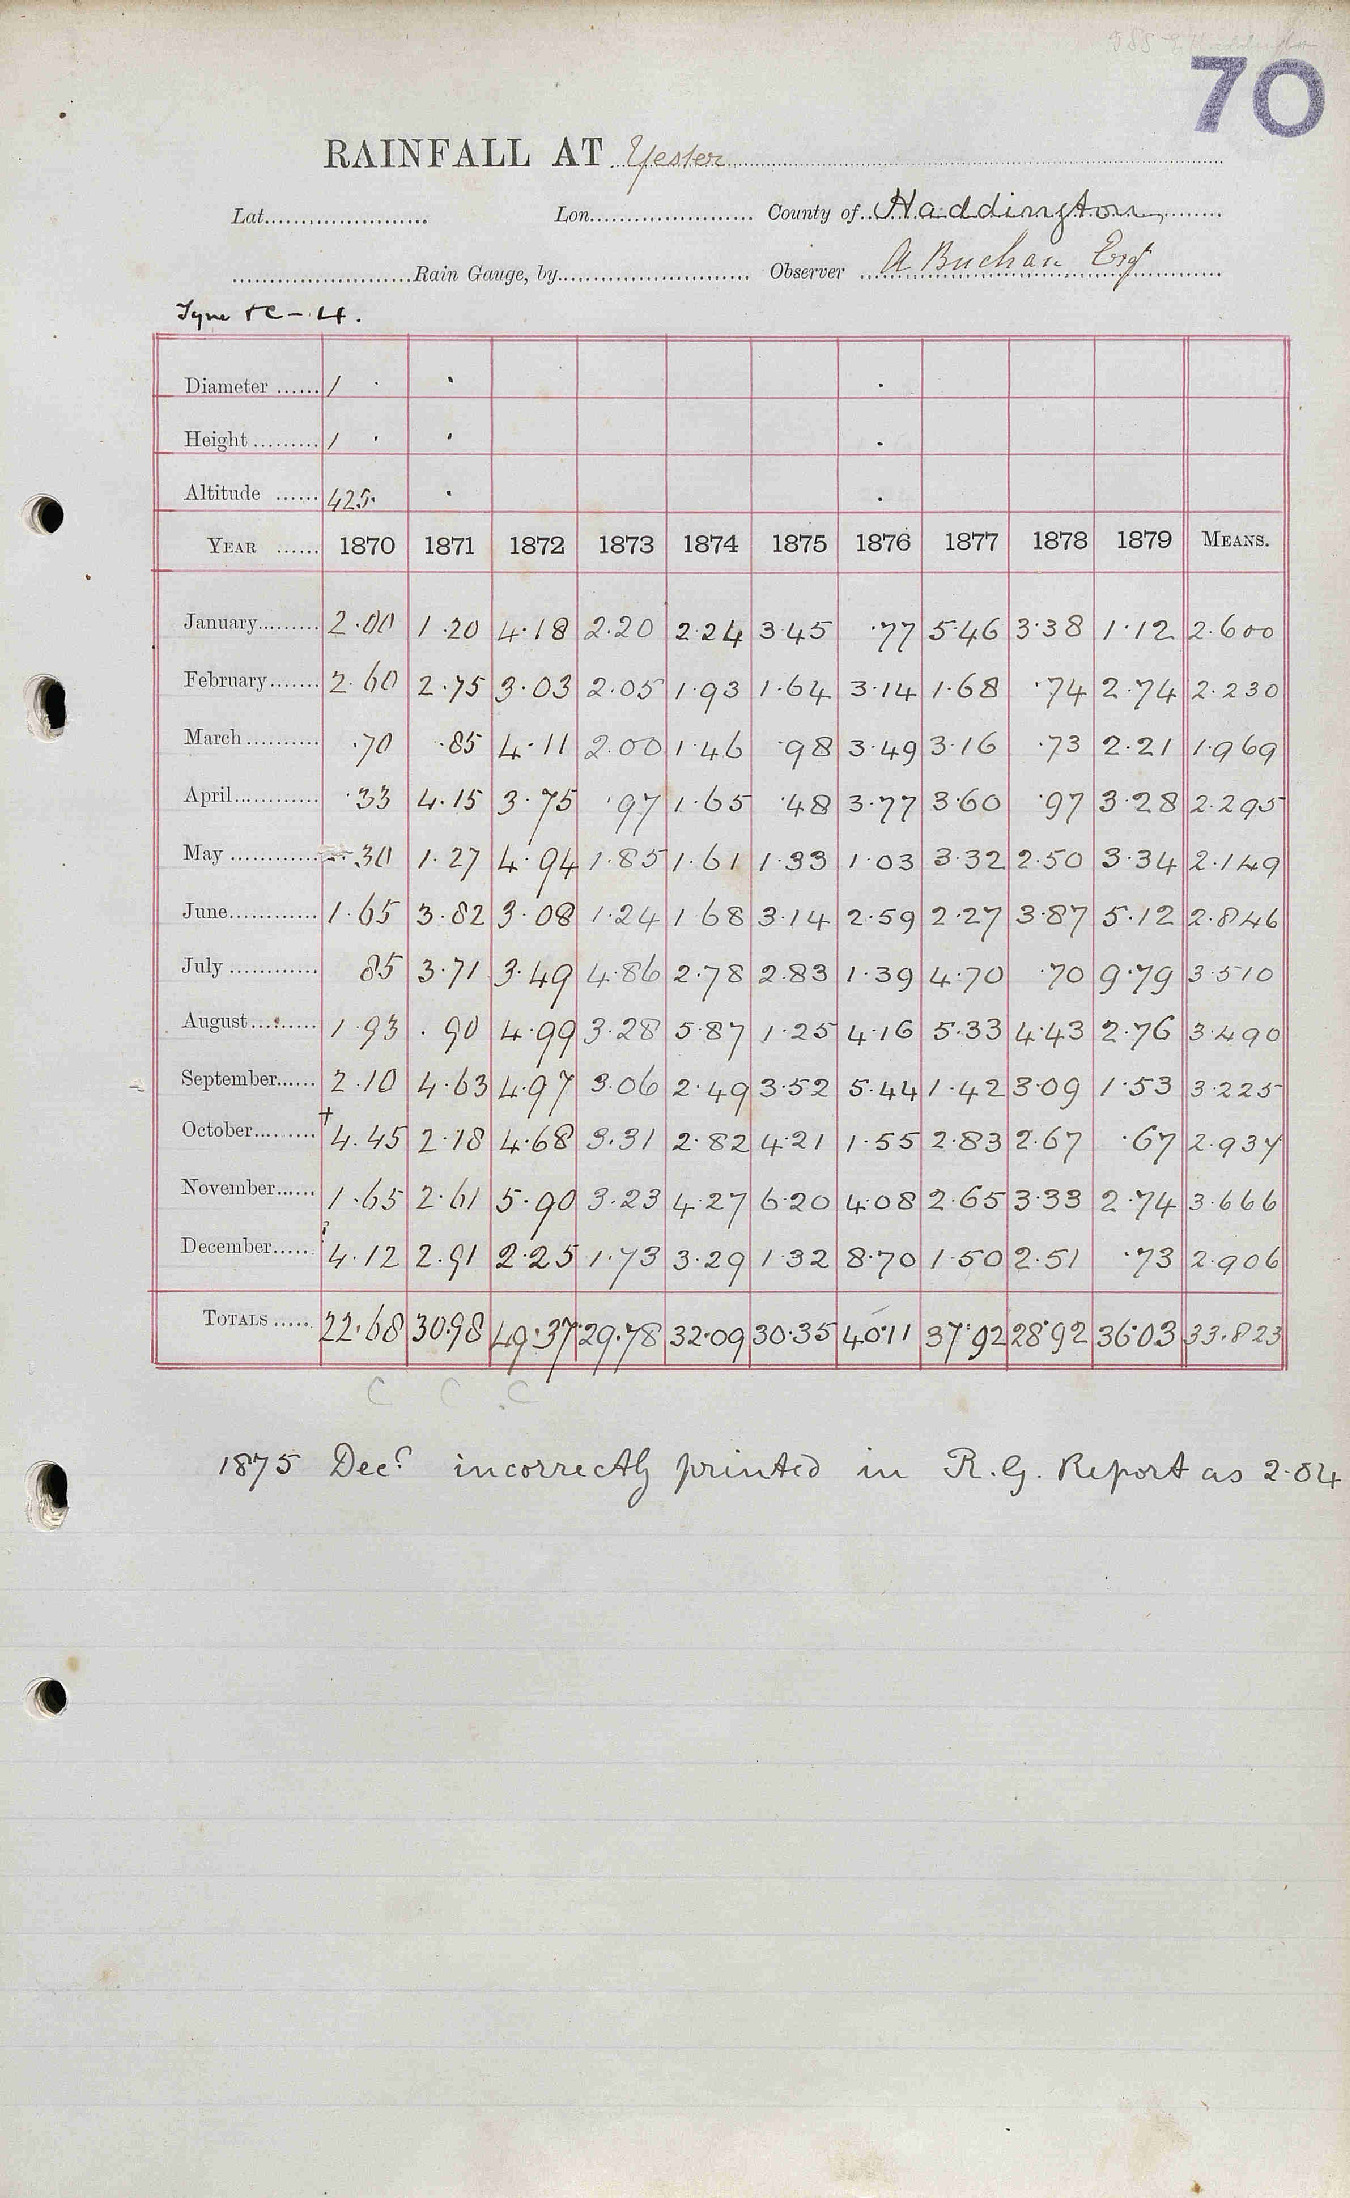 70
RAINFALL AT Yester
Lat. Lon. County of Haddington
Rain Gauge, by Observer A Buchan Esqr
Diameter 1
Height 1
Altitude 425
YEAR 1870 1871 1872 1873 1874 1875 1876 1877 1878 1879 MEANS.
January 2.00 1.20 4.18 2.20 2.24 3.45 .77 5.46 3.38 1.12 2.600
February 2.60 2.75 3.03 2.05 1.93 1.64 3.14 1.68 .74 2.74 2.230
March .70 .85 4.11 2.00 1.46 .98 3.49 3.16 .73 2.21 1.969
April .33 4.15 3.75 .97 1.65 .48 3.77 3.60 .97 3.28 2.295
May .30 1.27 4.94 1.85 1.61 1.33 1.03 3.32 2.50 3.34 2.149
June 1.65 3.82 3.08 1.24 1.68 3.14 2.59 2.27 3.87 5.12 2.846
July 85 3.71 3.49 4.86 2.78 2.83 1.39 4.70 .70 9.79 3.510
August 1.93 .90 4.99 3.28 5.87 1.25 4.16 5.33 4.43 2.76 3.490
September 2.10 4.63 4.97 3.06 2.49 3.52 5.44 1.42 3.09 1.53 3.225
October + 4.45 2.18 4.68 3.31 2.82 4.21 1.55 2.83 2.67 .67 2.937
November 1.65 2.61 5.90 3.23 4.27 6.20 4.08 2.65 3.33 2.74 3.666
December 4.12 2.91 2.25 1.73 3.29 1.32 8.70 1.50 2.51 .73 2.906
TOTALS 22.68 30.98 49.37 29.78 32.09 30.35 40.11 37.92 28.92 36.03 33.823
C C C
1875 Decr incorrectly printed in R.G. Report as 2.04